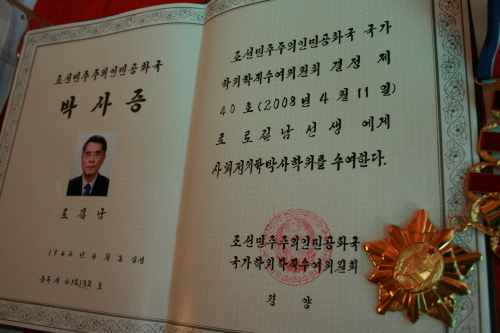 조선민주주의인민공화국
박사증
로길남
1944년 4월 3일생
증 제 418132 호
조선민주주의인민공화국 국가
학위학직수여위원회 결정 제
40호 (2008년 4월 11일)
로 로길남 선생에게
사회정치학박사학위를 수여한다.
조선민주주의인민공화국
국가학위학직수여위원회
평양